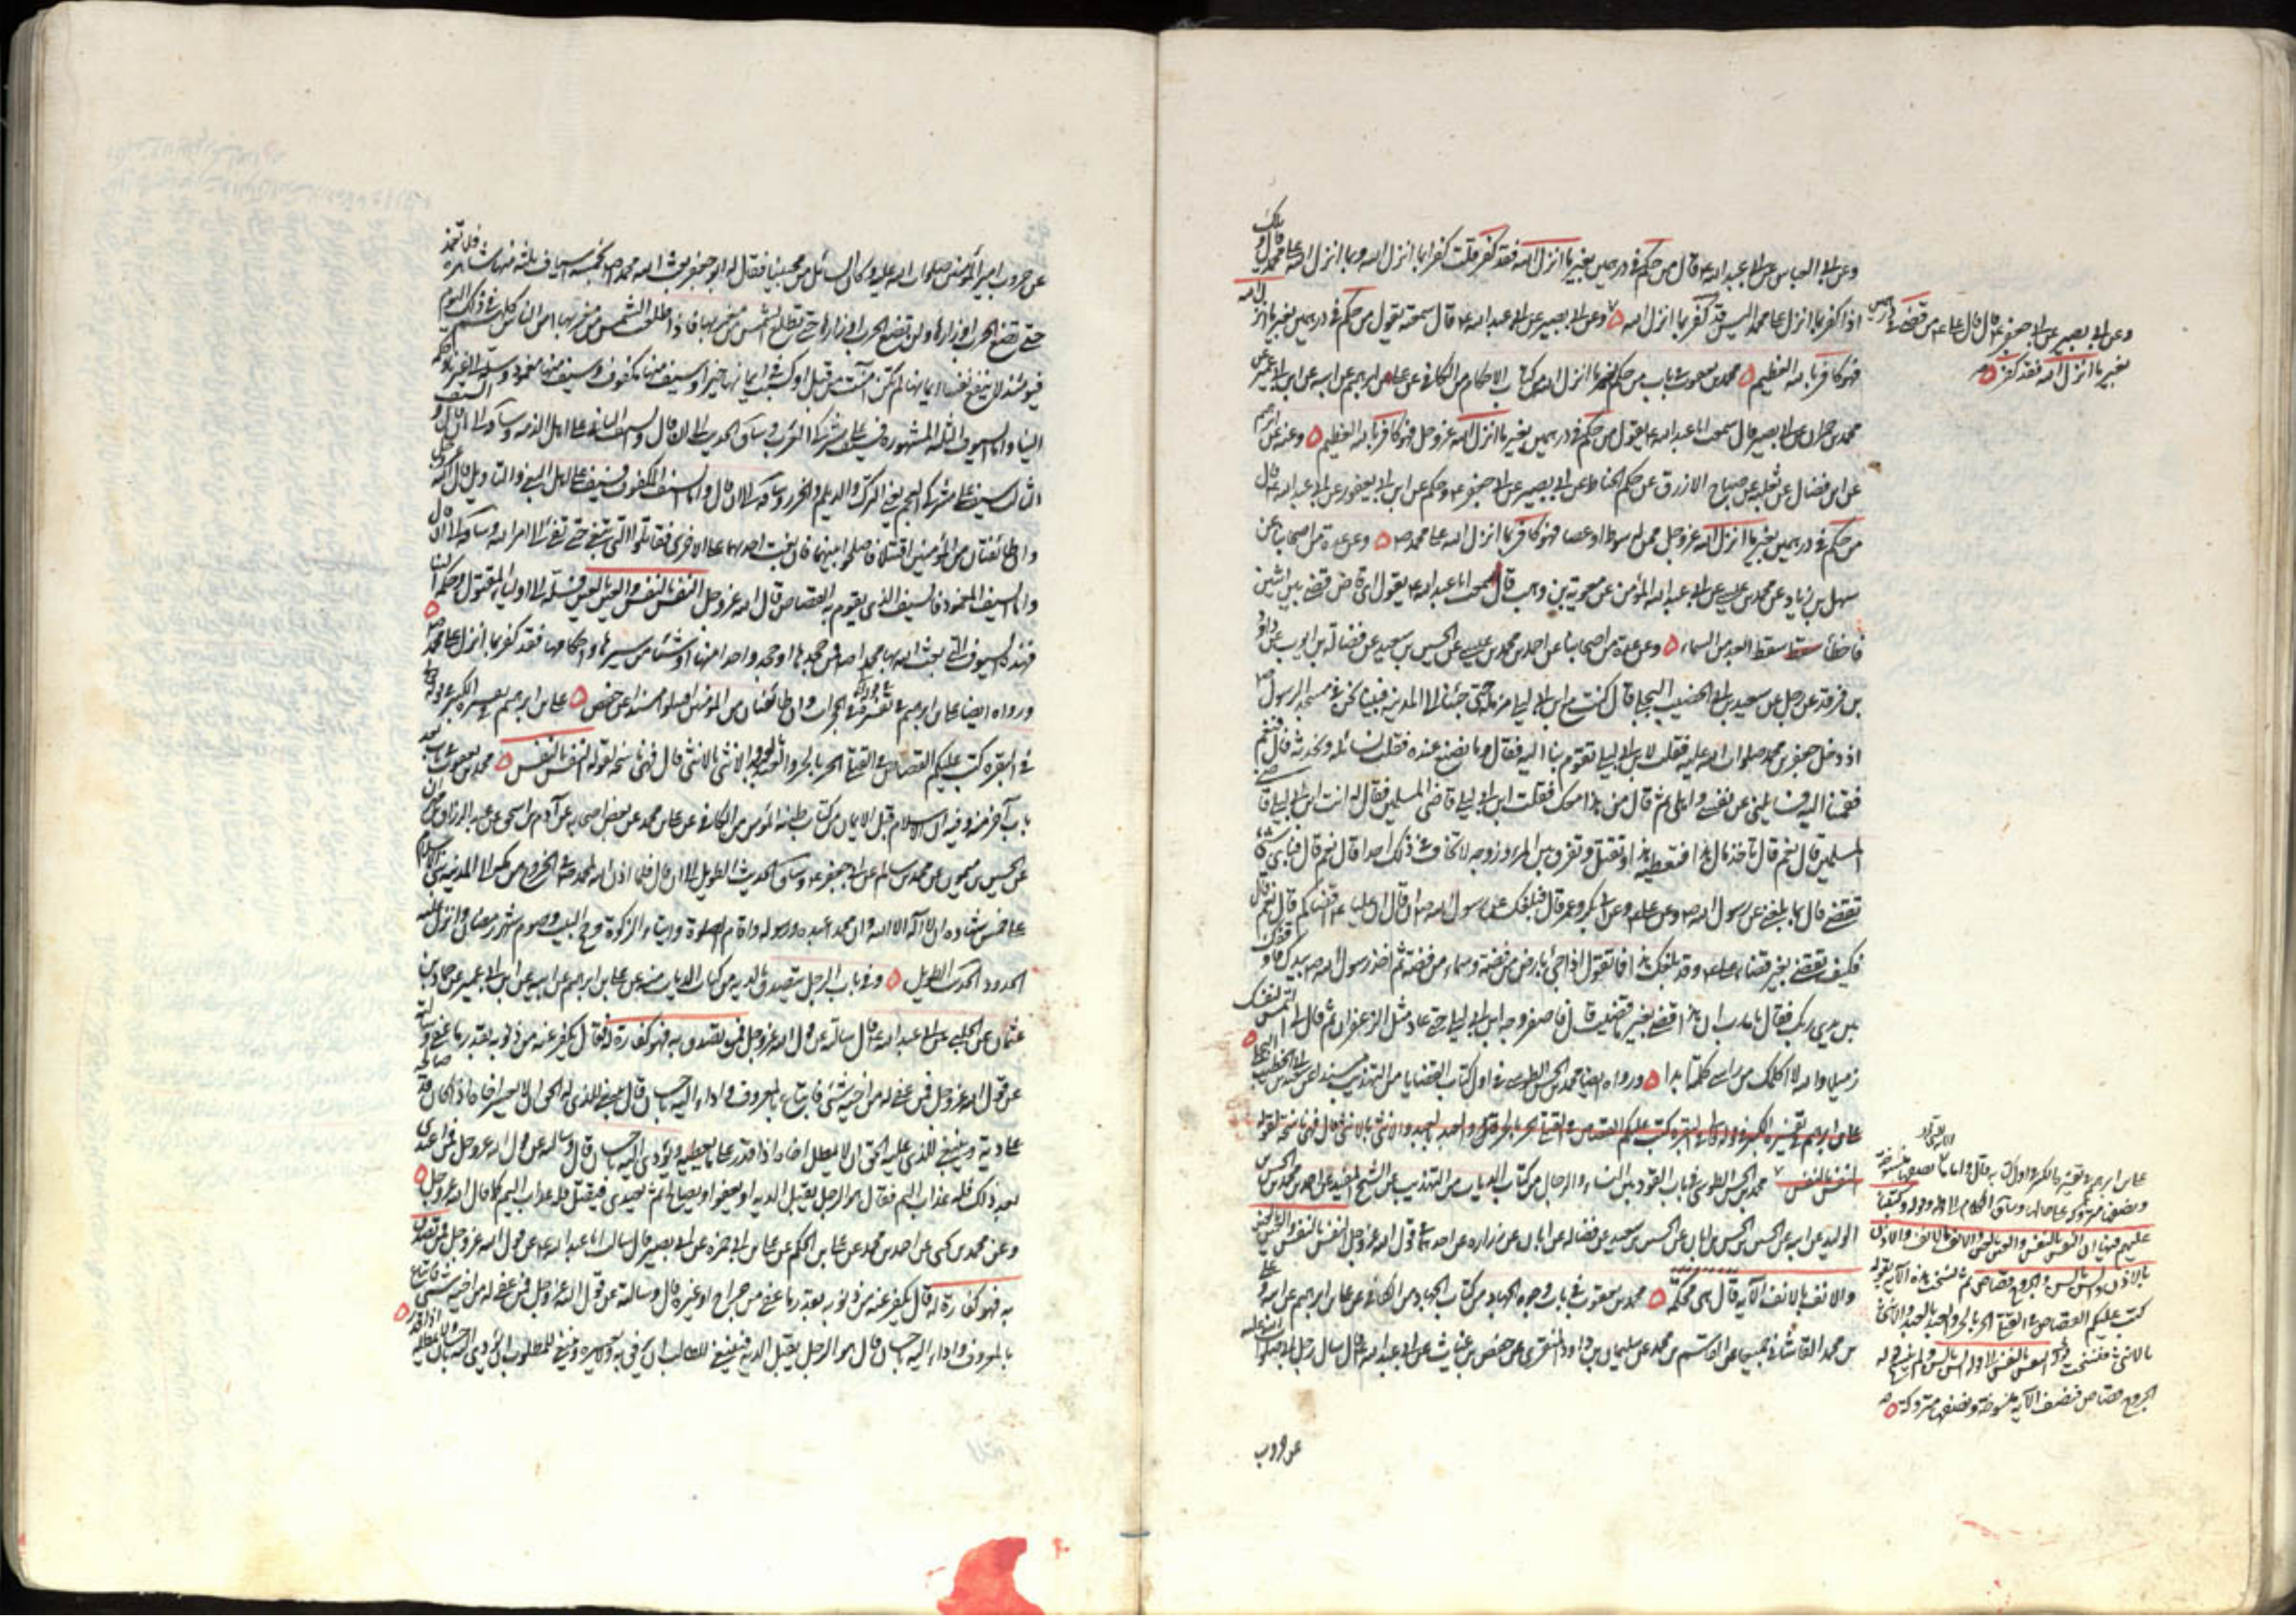 وعن ابي العباس عن ابي عبد الله ع قال من حكم في درهمين بغير ما انزل الله فقد كفر قلت كفر بما انزل الله وبما انزل الله على محمد قال ويلك
اذا كفر بما انزل على محمد اليس قد كفر بما انزل الله وعن ابي بصير عن ابي عبد الله ع قال سمعته يقول من حكم في درهمين بغير ما انزل الله
فهو كافر بالله العظيم محمد بن يعقوب في باب من حكم بغير ما انزل الله من كتاب الاحكام من الكافي عن علي بن ابراهيم عن ابيه عن ابن ابي عمير عن
محمد بن حمران عن ابي بصير قال سمعت ابا عبد الله ع يقول من حكم في درهمين بغير ما انزل الله عز وجل فهو كافر بالله العظيم وعنه عن ابيه
عن ابن فضال عن ثعلبة عن صباح الازرق عن حكم الحناط عن ابي بصير عن ابي جعفر ع وحكم عن ابن ابي يعفور عن ابي عبد الله ع قال
من حكم في درهمين بغير ما انزل الله عز وجل ممن له سوط او عصا فهو كافر بما انزل الله على محمد ص وعن عدة من اصحابنا عن
سهل بن زياد عن محمد بن عيسى عن ابي عبد الله المؤمن عن معوية بن وهب قال سمعت ابا عبد الله ع يقول اي قاض قضى بين اثنين
فاخطأ سقط ابعد من السماء وعن عدة من اصحابنا عن احمد بن محمد بن عيسى عن الحسين بن سعيد عن فضالة بن ايوب عن داود
بن فرقد عن رجل عن سعيد بن ابي الخضيب البجلي قال كنت مع ابن ابي ليلى مزامله حتى جئنا الى المدينة فبينا نحن في مسجد الرسول ص
اذ دخل جعفر بن محمد صلوات الله عليه فقلت لابن ابي ليلى تقوم بنا اليه فقال وما نصنع عنده فقلت نسائله ونحدثه فقال قم
فقمنا اليه فسائلني عن نفسي واهلي ثم قال من هذا معك فقلت ابن ابي ليلى قاضي المسلمين فقال له انت ابن ابي ليلى قاضي
المسلمين قال نعم قال تأخذ مال هذا فتعطيه هذا وتقتل وتفرق بين المرء وزوجه لا تخاف في ذلك احدا قال نعم قال فباي شئ
تقضي قال بما بلغني عن رسول الله ص وعن علي ع وعن ابي بكر وعمر قال فبلغك عن رسول الله ص انه قال ان عليا ع اقضاكم قال نعم قال
فكيف تقضي بغير قضاء علي ع وقد بلغك هذا فما تقول اذا جئ بارض من فضة وسماء من فضة ثم اخذ رسول الله ص بيدك فاوقفك
بين يدي ربك فقال يا رب ان هذا قضى بغير ما قضيت قال فاصفر وجه ابن ابي ليلى حتى عاد مثل الزعفران ثم قال لي التمس لنفسك
زميلا والله لا اكلمك من رأسي كلمة ابدا ورواه ايضا محمد بن الحسن الطوسي في اول كتاب القضايا من التهذيب مسندا عن سعيد بن ابي الخضيب البجلي
علي بن ابراهيم في تفسيره الكبير في قوله تعالى في البقرة كتب عليكم القصاص في القتلى الحر بالحر والعبد بالعبد والانثى بالانثى قال فهي ناسخة لقوله
النفس بالنفس محمد بن الحسن الطوسي في باب القود بين النساء والرجال من كتاب الديات من التهذيب عن الشيخ المفيد عن احمد بن محمد بن الحسن بن
الوليد عن ابيه عن الحسين بن الحسن بن ابان عن الحسين بن سعيد عن فضالة عن ابان عن زرارة عن احدهما في قول الله عز وجل النفس بالنفس والعين بالعين
والانف بالانف الآية قال هي محكمة محمد بن يعقوب في باب وجوه الجهاد من كتاب الجهاد من الكافي عن علي بن ابراهيم عن ابيه وعلي
بن محمد القاشاني جميعا عن القسم بن محمد عن سليمان بن داود المنقري عن حفص بن غياث عن ابي عبد الله ع قال سال رجل ابي صلوات الله عليه
عن حروب
وعن ابي بصير عن ابي جعفر ع قال قال علي ع من قضى في درهمين
بغير ما انزل الله فقد كفر
علي بن ابراهيم في تفسيره الكبير في اول كتابه قال واما ما نصفه منسوخة
ونصفه متروكة على حالها وساق الكلام الى قوله وقوله وكتبنا
عليهم فيها ان النفس بالنفس والعين بالعين والانف بالانف والاذن
بالاذن والسن بالسن والجروح قصاص ثم نسخت هذه الآية بقوله
كتب عليكم القصاص في القتلى الحر بالحر والعبد بالعبد والانثى
بالانثى فنسخت قوله النفس بالنفس الى قوله السن بالسن ولم ينسخ قوله
الجروح قصاص فنصف الآية منسوخة ونصفها متروكة
عن حروب امير المؤمنين صلوات الله عليه وكان السائل من محبينا فقال له ابو جعفر بعث الله محمدا ص بخمسة اسياف ثلثة منها شاهرة فلا تغمد
حتى تضع الحرب اوزارها ولن تضع الحرب اوزارها حتى تطلع الشمس من مغربها فاذا طلعت الشمس من مغربها امن الناس كلهم في ذلك اليوم
فيومئذ لا ينفع نفسا ايمانها لم تكن آمنت من قبل او كسبت في ايمانها خيرا وسيف منها مكفوف وسيف منها مغمود سله الى غيرنا وحكمه
الينا واما السيوف الثلثة المشهورة فسيف على مشركي العرب وساق الحديث الى ان قال والسيف الثاني على اهل الذمة وساقه الى ان قال والسيف
الثالث سيف على مشركي العجم يعني الترك والديلم والخزر وساقه الى ان قال واما السيف المكفوف فسيف على اهل البغي والتأويل قال الله عز وجل
وان طائفتان من المؤمنين اقتتلوا فاصلحوا بينهما فان بغت احديهما على الاخرى فقاتلوا التي تبغي حتى تفئ الى امر الله وساقه الى ان قال
واما السيف المغمود فالسيف الذي يقوم به القصاص قال الله عز وجل النفس بالنفس والعين بالعين فسله الى اولياء المقتول وحكمه الينا
فهذه السيوف التي بعث الله بها محمدا ص فمن جحدها او جحد واحدا منها او شيئا من سيرها واحكامها فقد كفر بما انزل على محمد ص
ورواه ايضا علي بن ابراهيم في تفسيره في الحجرات وان طائفتان من المؤمنين اقتتلوا مسندا عن حفص علي بن ابراهيم في تفسيره الكبير في قوله تعالى
في البقرة كتب عليكم القصاص في القتلى الحر بالحر والعبد بالعبد والانثى بالانثى قال فهي ناسخة لقوله النفس بالنفس محمد بن يعقوب في باب بعد
باب آخر منه وفيه ان الاسلام قبل الايمان من كتاب طينة المؤمن من الكافي عن علي بن محمد عن بعض اصحابه عن آدم بن اسحق عن عبد الرزاق بن مهران
عن الحسين بن ميمون عن محمد بن سالم عن ابي جعفر ع وساق الحديث الطويل الى ان قال فلما اذن الله لمحمد ص في الخروج من مكة الى المدينة بني الاسلام
على خمس شهادة ان لا اله الا الله وان محمدا عبده ورسوله واقام الصلوة وايتاء الزكوة وحج البيت وصوم شهر رمضان وانزل عليه
الحدود الحديث الطويل وفي باب الرجل يتصدق بالدية من كتاب الديات منه عن علي بن ابراهيم عن ابيه عن ابن ابي عمير عن حماد بن
عثمان عن الحلبي عن ابي عبد الله ع قال سالته عن قول الله عز وجل فمن تصدق به فهو كفارة له فقال يكفر عنه من ذنوبه بقدر ما عفى وسالته
عن قول الله عز وجل فمن عفي له من اخيه شئ فاتباع بالمعروف واداء اليه باحسان قال ينبغي للذي له الحق ان لا يعسر اخاه اذا كان قد صالحه
على دية وينبغي للذي عليه الحق ان لا يمطل اخاه اذا قدر على ما يعطيه ويؤدي اليه باحسان قال وسالته عن قول الله عز وجل فمن اعتدى
بعد ذلك فله عذاب اليم فقال هو الرجل يقبل الدية او يعفو او يصالح ثم يعتدي فيقتل فله عذاب اليم كما قال الله عز وجل
وعن محمد بن يحيى عن احمد بن محمد عن علي بن الحكم عن علي بن ابي حمزة عن ابي بصير قال سالت ابا عبد الله ع عن قول الله عز وجل فمن تصدق
به فهو كفارة له قال يكفر عنه من ذنوبه بقدر ما عفى من جراح او غيره قال وسالته عن قول الله عز وجل فمن عفي له من اخيه شئ فاتباع
بالمعروف واداء اليه باحسان قال هو الرجل يقبل الدية فينبغي للطالب ان يرفق به ولا يعسره وينبغي للمطلوب ان يؤدي اليه باحسان ولا يمطله اذا قدر